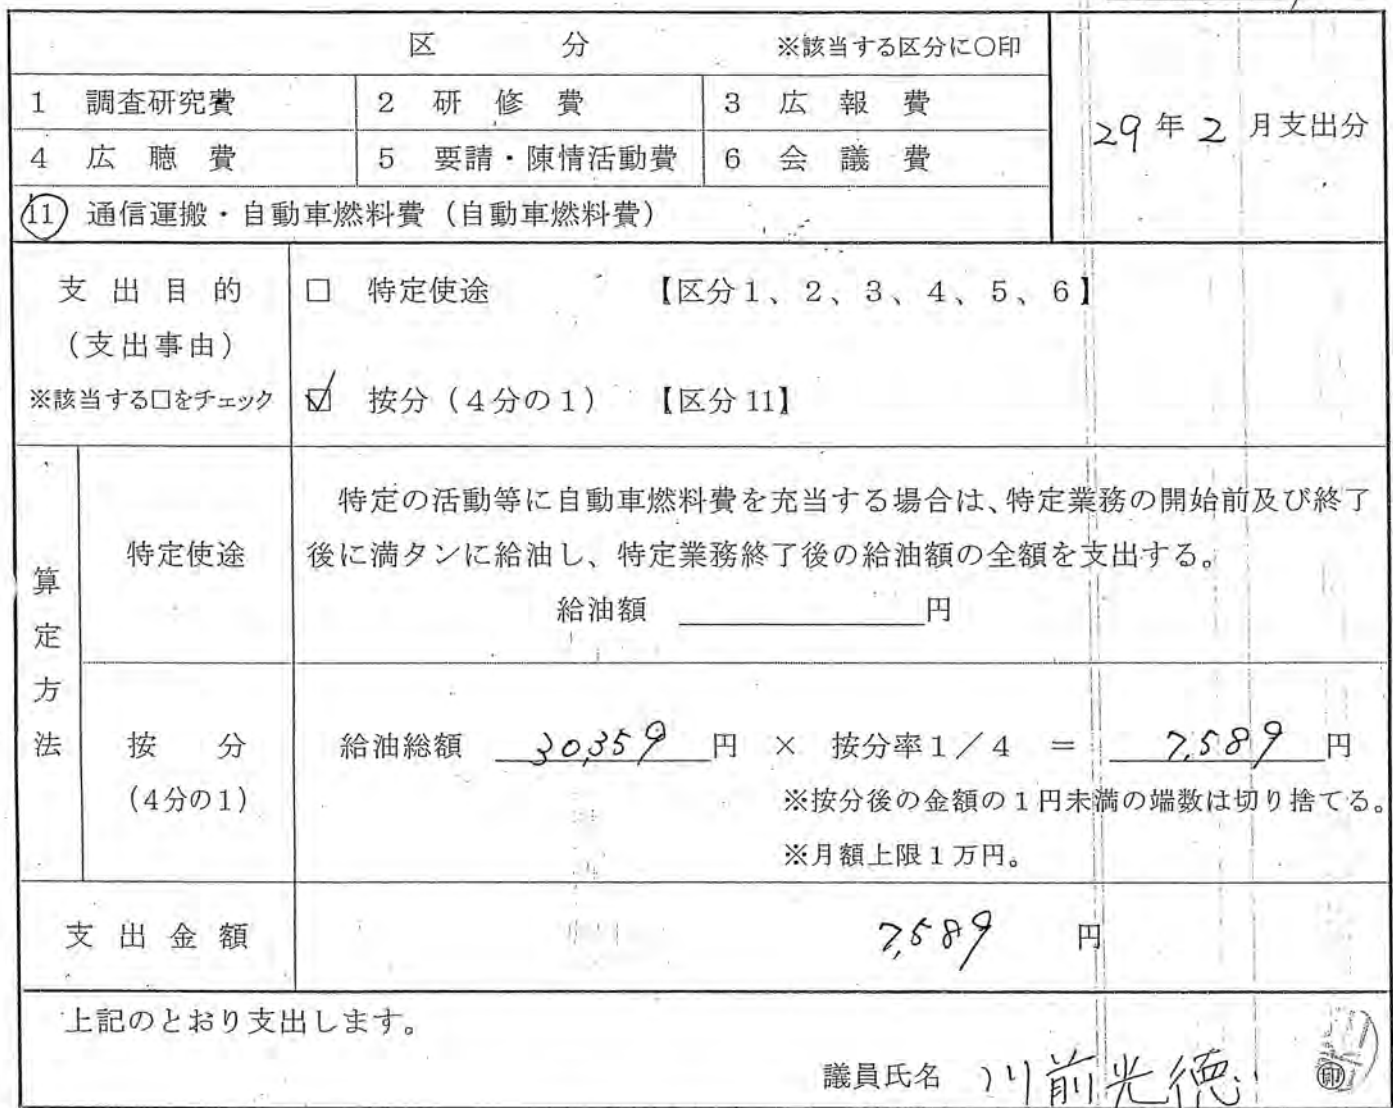 区 分 ※該当する区分に○印
1 調査研究費 2 研修費 3 広報費
29年2月支出分
4 広聴費 5 要請・陳情活動費 6 会議費
11 通信運搬・自動車燃料費（自動車燃料費）
支出目的
（支出事由）
※該当する□をチェック
□ 特定使途 【区分1、2、3、4、5、6】
☑ 按分（4分の1） 【区分11】
算定方法
特定使途
特定の活動等に自動車燃料費を充当する場合は、特定業務の開始前及び終了
後に満タンに給油し、特定業務終了後の給油額の全額を支出する。
給油額 円
按分
（4分の1）
給油総額 30,359 円 × 按分率1／4 ＝ 7,589 円
※按分後の金額の1円未満の端数は切り捨てる。
※月額上限1万円。
支出金額 7,589 円
上記のとおり支出します。
議員氏名 川前光徳 印